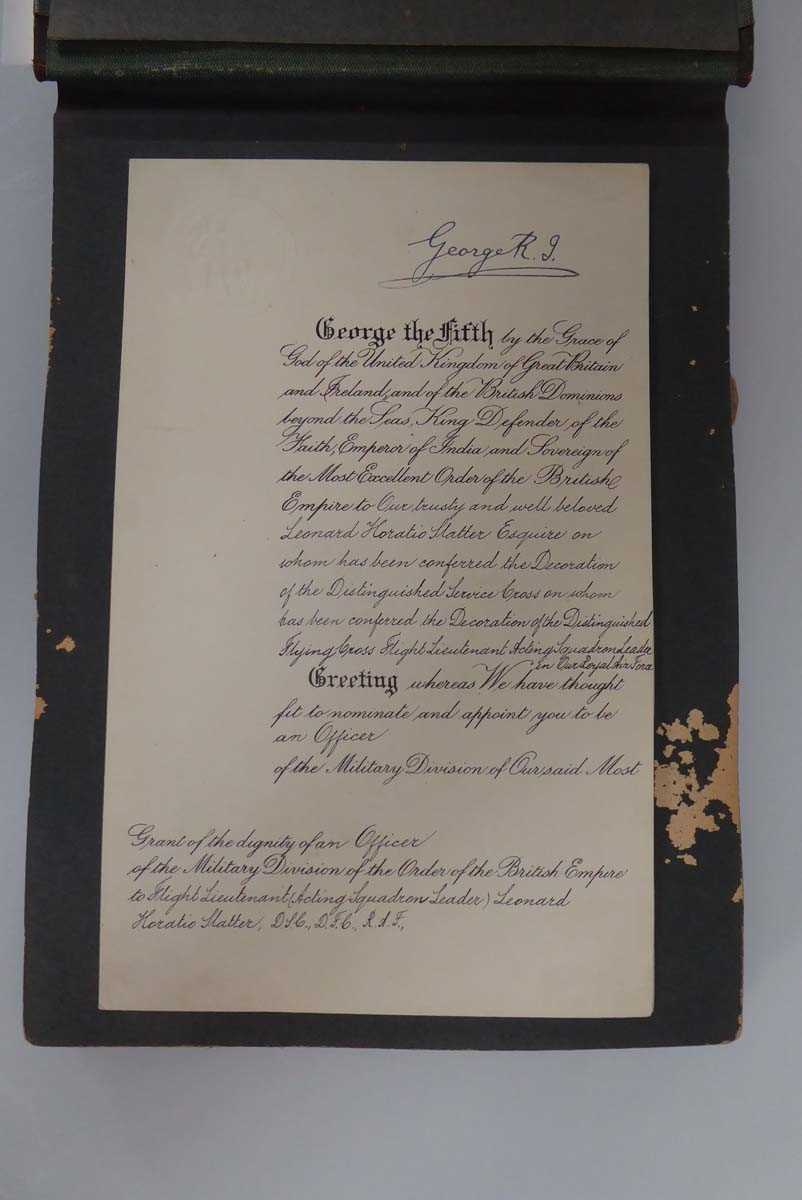 George R.I.
George the Fifth by the Grace of
God of the United Kingdom of Great Britain
and Ireland, and of the British Dominions
beyond the Seas, King Defender, of the
Faith, Emperor of India, and Sovereign of
the Most Excellent Order of the British
Empire to Our trusty and well beloved
Leonard Horatio Slatter Esquire on
whom has been conferred the Decoration
of the Distinguished Service Cross on whom
has been conferred the Decoration of the Distinguished
Flying Cross Flight Lieutenant Acting Squadron Leader
in Our Loyal Air Force
Greeting whereas We have thought
fit to nominate and appoint you to be
an Officer
of the Military Division of Our said Most
Grant of the dignity of an Officer
of the Military Division of the Order of the British Empire
to Flight Lieutenant (Acting Squadron Leader) Leonard
Horatio Slatter, D.S.C., D.F.C., R.A.F.,